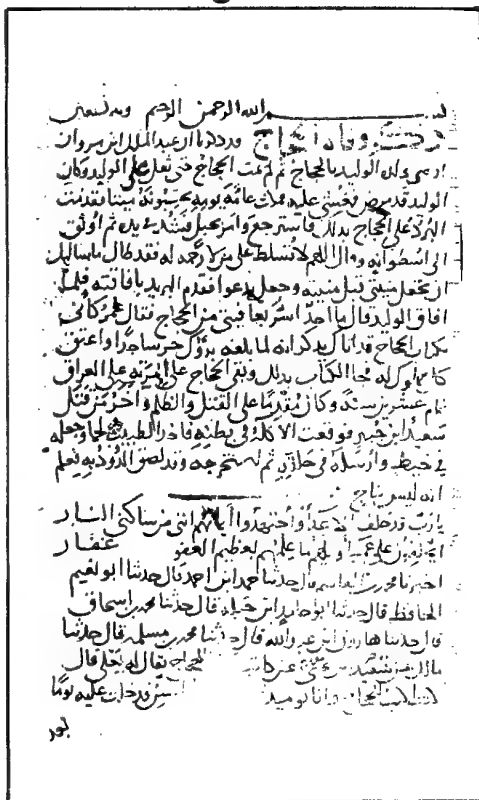 بسم الله الرحمن الرحيم وبه نستعين
ذكر وفاة الحجاج قد ذكرنا ان عبد الملك ابن مروان
اوصى ولده الوليد بالحجاج ثم لم يمت الحجاج حتى ثقل على الوليد وكان
الوليد قد مرض فغشي عليه فمكث عامة يومه يحسبونه ميتا فقدمت
البرد على الحجاج بذلك فاسترجع وامر بحبل فشد في يده ثم اوثق
الى اسطوانة وقال اللهم لا تسلط علي من لا رحمة له فقد طال ما سالتك
ان تجعل منيتي قبل منيته وجعل يدعوا فقدم البريد بافاقته فلما
افاق الوليد قال ما احد اسر بعافيتي من الحجاج فقال عمر كاني
بكتاب الحجاج قد اتاك يذكر انه لما بلغه برؤك خر ساجدا واعتق
كل مملوك له فجا الكتاب بذلك وبقي الحجاج على امرته على العراق
تمام عشرين سنة وكان مقدما على القتل والظلم واخر من قتل
سعيد ابن جبير فوقعت الاكلة في بطنه فاخذ الطبيب لحما وجعله
في خيط وارسله في حلقه ثم استخرجه وقد لصق الدود به فعلم
انه ليس بناج
يا رب قد حلف الاعداء واجتهدوا ايمانهم انني من ساكني النار
ايحلفون على عمياء ويلهم ما علمهم بعظيم العفو غفار
اخبرنا محمد بن القاسم قال حدثنا حمد ابن احمد قال حدثنا ابو نعيم
الحافظ قال حدثنا ابو حامد ابن جبلة قال حدثنا محمد بن اسحاق
قال حدثنا هارون ابن عبد الله قال حدثنا محمد بن مسلمة قال حدثنا
مالك عن يحيى بن سعيد عن كاتب الحجاج يقال له يعلى قال
كنت اكتب للحجاج وانا يومئذ السن فدخلت عليه يوما